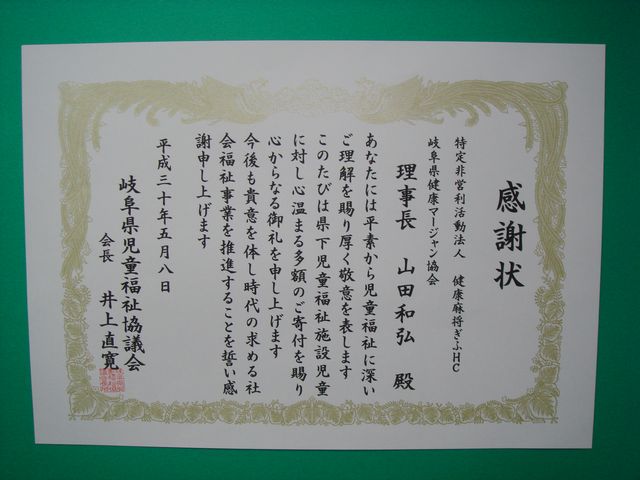 感謝状
特定非営利活動法人 健康麻将ぎふHC
岐阜県健康マージャン協会
理事長 山田和弘 殿
あなたには平素から児童福祉に深い
ご理解を賜り厚く敬意を表します
このたびは県下児童福祉施設児童
に対し心温まる多額のご寄付を賜り
心からなる御礼を申し上げます
今後も貴意を体し時代の求める社
会福祉事業を推進することを誓い感
謝申し上げます
平成三十年五月八日
岐阜県児童福祉協議会
会長 井上直寛